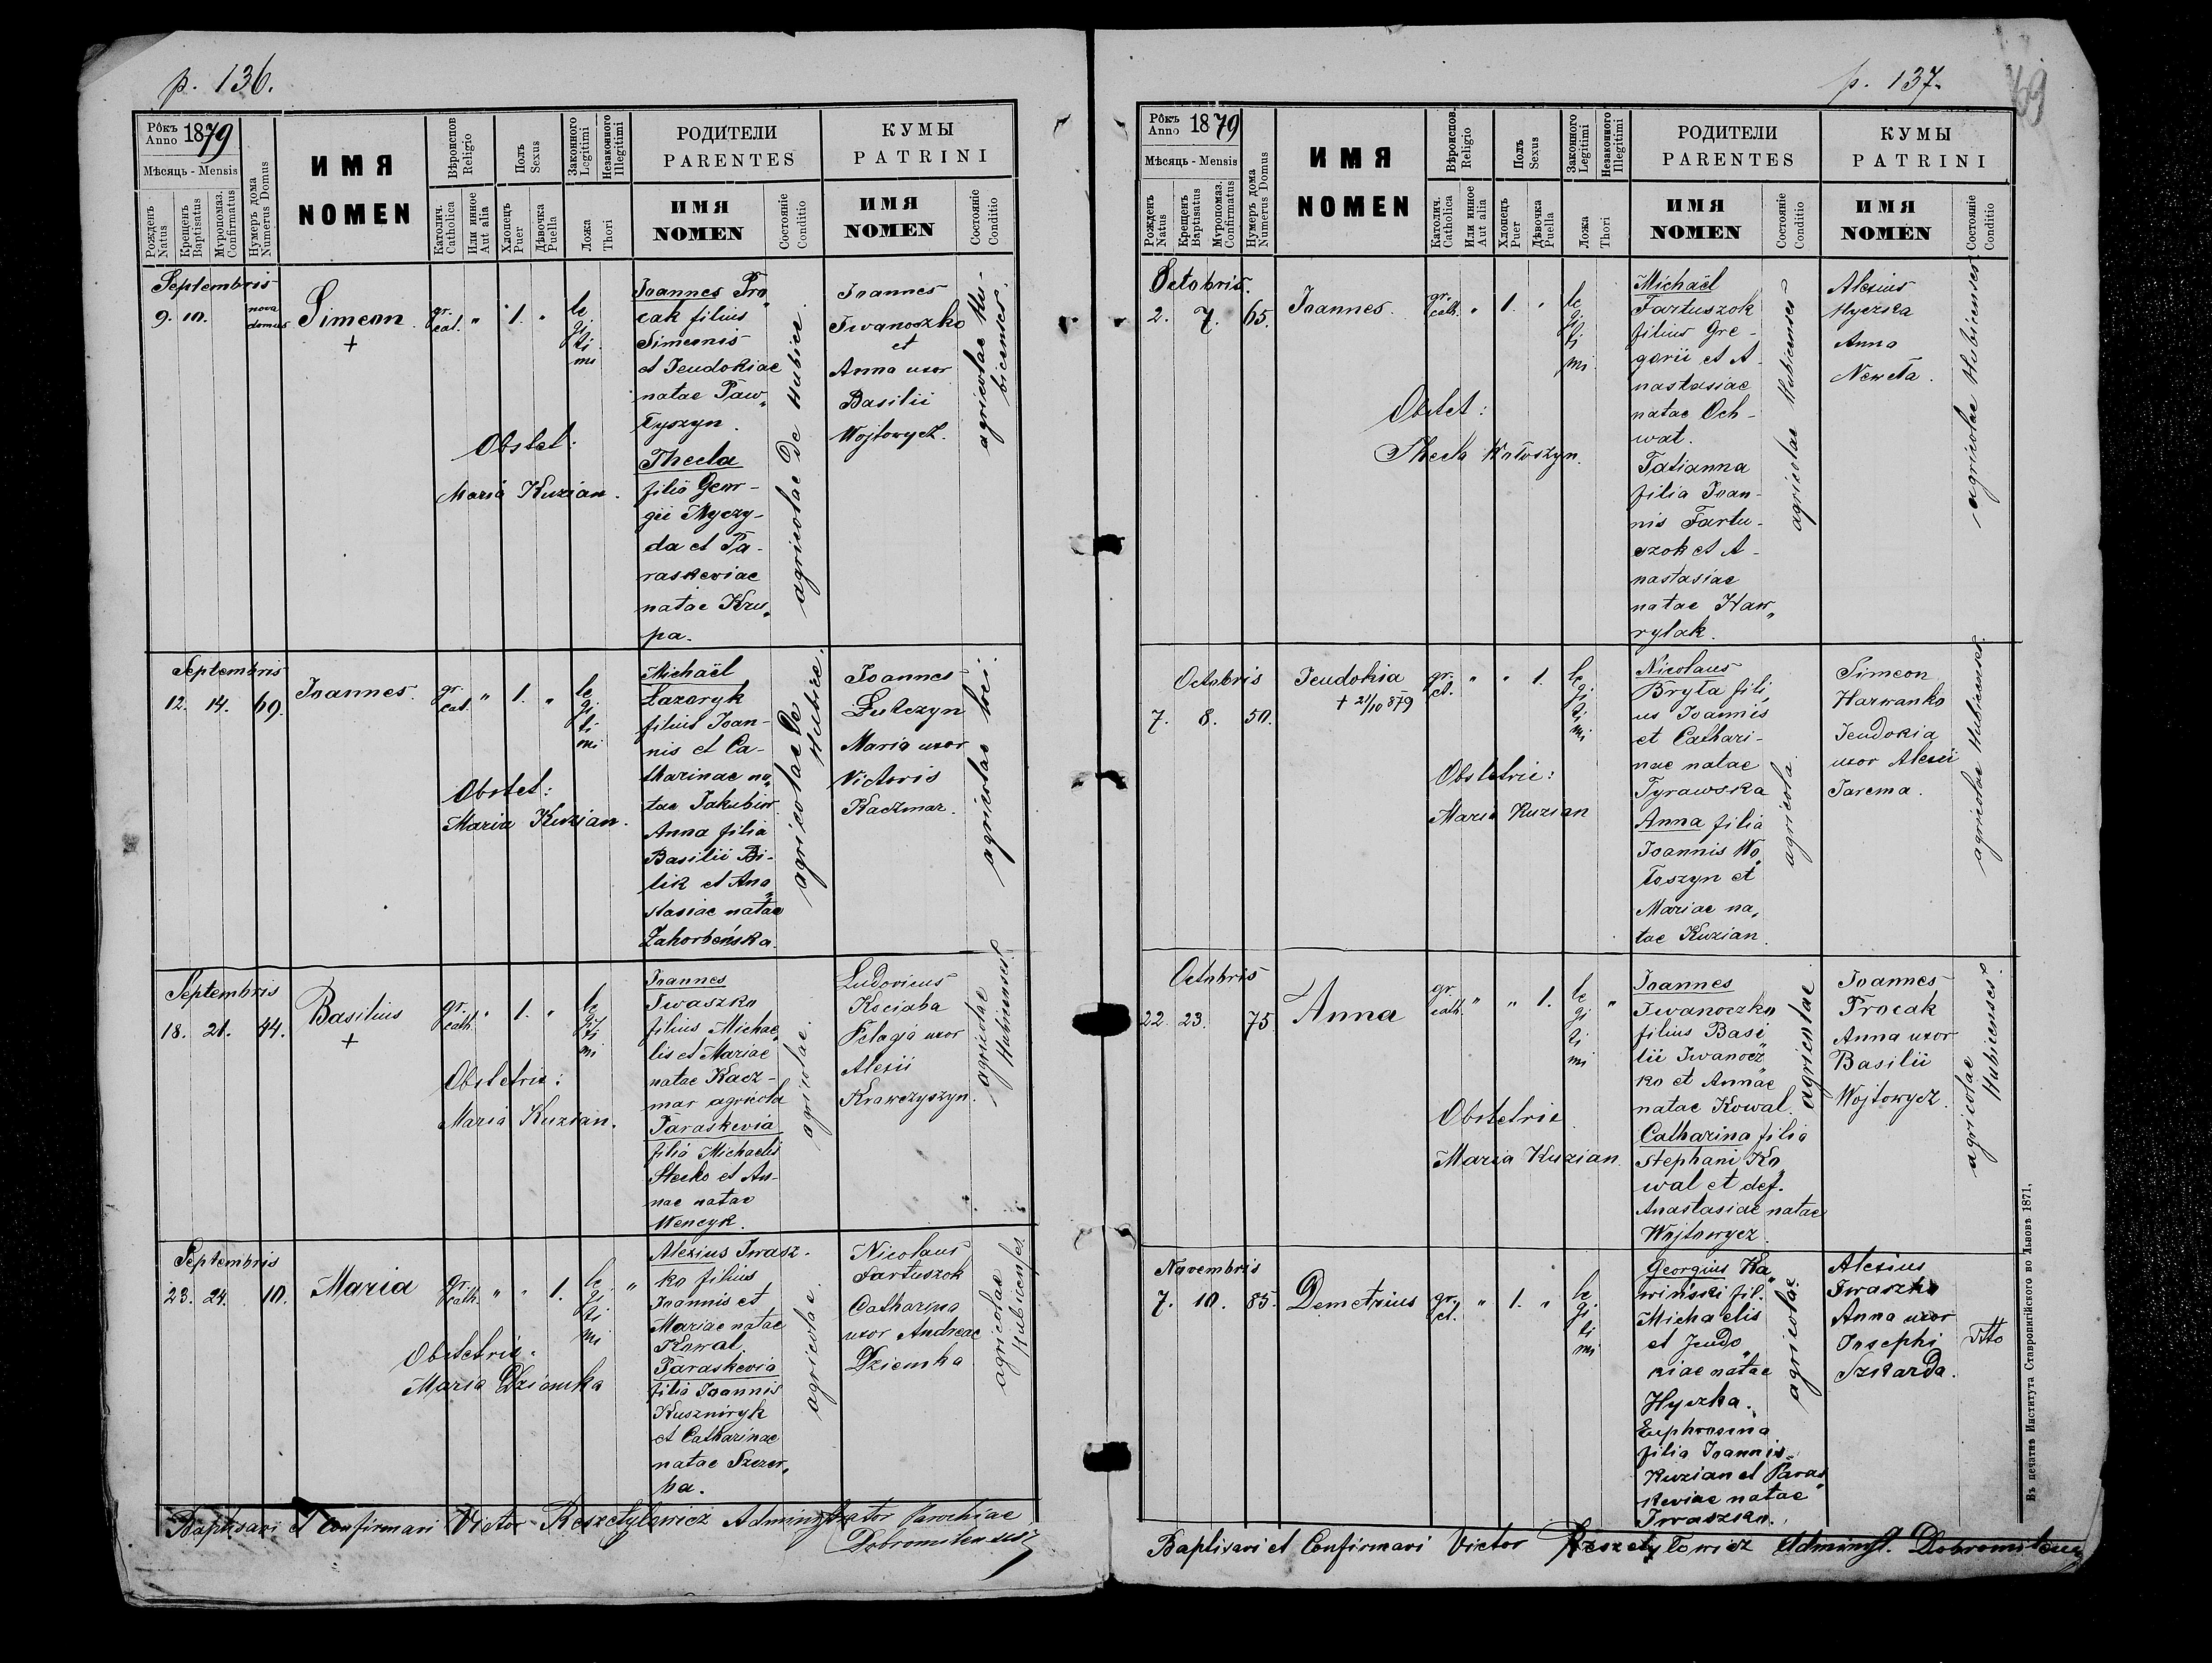 p. 136.
Рôкъ
Anno 1879
Мѣсяць - Mensis
Рожденъ
Natus
Крещенъ
Baptisatus
Мѵропомаз.
Confirmatus
Нумеръ дома
Numerus Domus
ИМЯ
NOMEN
Вѣроисповѣд.
Religio
Католич.
Catholica
Или инное
Aut alia
Полъ
Sexus
Хлопець
Puer
Дѣвочка
Puella
Законного
Legitimi
Незаконного
Illegitimi
Ложа
Thori
РОДИТЕЛИ
PARENTES
ИМЯ
NOMEN
Состоянïе
Conditio
КУМЫ
PATRINI
ИМЯ
NOMEN
Состоянïе
Conditio
Septembris
9. 10.
nova
domus
Simeon
+
gr.
cat. " 1. "
le
gi
ti
mi
Obstet:
Maria Kuzian.
Joannes Pro„
cak filius
Simeonis
et Jeudokiae
natae Paw„
łyszyn.
Thecla
filia Geor-
gii Myczy-
da et Pa-
raskeviae
natae Kru„
pa.
agricolae de Hubice
Joannes
Iwanoszko
et
Anna uxor
Basilii
Wojtowycz.
agricolae Hu-
bicenses.
Septembris
12. 14. 69.
Joannes.
gr.
cat. " 1. "
le
gi
ti
mi
Obstet:
Maria Kuzian.
Michaël
Łazoryk
filius Joan-
nis et Ca-
tharinae na„
tae Jakubiw
Anna filia
Basilii Bi-
lik et Ana„
stasiae natae
Zahorbeńska.
agricolae de
Hubice.
Joannes
Lutczyn
Maria uxor
Victoris
Kaczmar.
agricolae loci.
Septembris
18. 21. 44.
Basilius
+
gr.
cath. " 1. "
le
gi
ti
mi
Obstetrix:
Maria Kuzian.
Joannes
Iwaszko
filius Michae„
lis et Mariae
natae Kacz-
mar agricola
Paraskevia
filia Michaelis
Stecko et An-
nae natae
Wencyk.
agricolae.
Ludovicus
Kociaba
Pelagia uxor
Alexii
Krawczyszyn.
agricolae
Hubicenses.
Septembris
23. 24. 10.
Maria
gr.
cath. " " 1.
le "
gi
ti
mi
Obstetrix.
Maria Dziamka
Alexius Iwasz-
ko filius
Joannis et
Mariae natae
Kowal.
Paraskevia
filia Joannis
Kuszniryk
et Catharinae
natae Szczer„
ba.
agricolae.
Nicolaus
Fartuszok
Catharina
uxor Andreae
Dziamka
agricolae
Hubicenses.
Baptisavi et Confirmavi Victor Reszetyłowicz Administrator Parochiae
Dobromilensis
p. 137.
69
Рôкъ
Anno 1879
Мѣсяць - Mensis
Рожденъ
Natus
Крещенъ
Baptisatus
Мѵропомаз.
Confirmatus
Нумеръ дома
Numerus Domus
ИМЯ
NOMEN
Вѣроисповѣд.
Religio
Католич.
Catholica
Или инное
Aut alia
Полъ
Sexus
Хлопець
Puer
Дѣвочка
Puella
Законного
Legitimi
Незаконного
Illegitimi
Ложа
Thori
РОДИТЕЛИ
PARENTES
ИМЯ
NOMEN
Состоянïе
Conditio
КУМЫ
PATRINI
ИМЯ
NOMEN
Состоянïе
Conditio
Octobris.
2. 7. 65.
Joannes.
gr.
cath. " 1. "
le
gi
ti
mi
Obstet:
Thecla Wołoszyn.
Michaël
Fartuszok
filius Gre-
gorii et A-
nastasiae
natae Och-
wat.
Tatianna
filia Joan-
nis Fartu-
szok et A-
nastasiae
natae Haw„
rylak.
agricolae Hubicenses
Alexius
Hyczka
Anna
Neweta.
agricolae Hubicenses.
Octobris
7. 8. 50.
Jeudokia
+ 21/10 879
gr.
ct. " " 1.
le
gi
ti
mi
Obstetrix:
Maria Kuzian
Nicolaus
Bryta fili„
us Joannis
et Cathari-
nae natae
Tyrawska
Anna filia
Joannis Wo„
łoszyn et
Mariae na„
tae Kuzian.
agricola
Simeon
Harwanko
Jeudokia
uxor Alexii
Jarema.
agricolae Hubicenses.
Octobris
22. 23. 75.
Anna
gr.
cath. " " 1.
le "
gi
ti
mi
Obstetrix.
Maria Kuzian.
Joannes
Iwanoczko
filius Basi„
lii Iwanocz„
ko et Annae
natae Kowal.
Catharina filia
Stephani Ko„
wal et def.
Anastasiae natae
Wojtowycz.
agricolae
Joannes
Procak
Anna uxor
Basilii
Wojtowycz.
agricolae
Hubicenses.
Novembris
7. 10. 85.
Demetrius
gr.
ct. " 1. "
le
gi
ti
mi
Georgius Ka„
wiński fil.
Michaelis
et Jeudo„
kiae natae
Hyczka.
Euphrosina
filia Joannis
Kuzian et Paras„
keviae natae
Iwaszko.
agricolae.
Alexius
Iwaszko
Anna uxor
Josephi
Szkarda.
dtto
Baptisavi et Confirmavi Victor Reszetyłowicz Administ. Dobromilensis
Въ печатнѣ Института Ставропигійского во Львовѣ 1871,